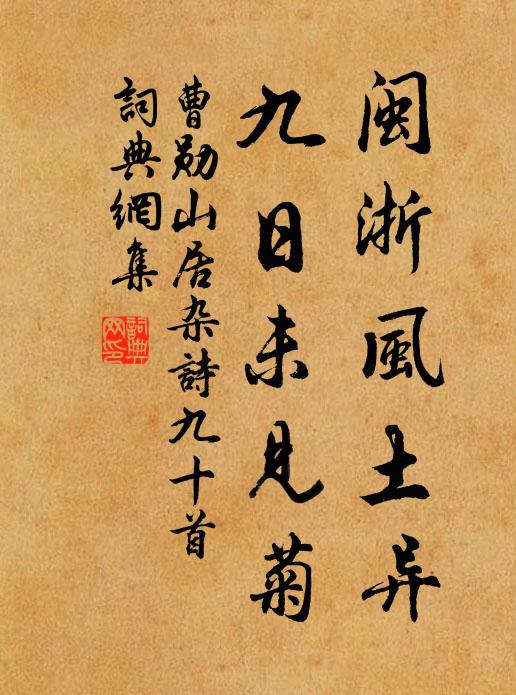 闽浙風土异
九日未見菊
曹勋山居杂詩九十首
詞典網集
詞典網印